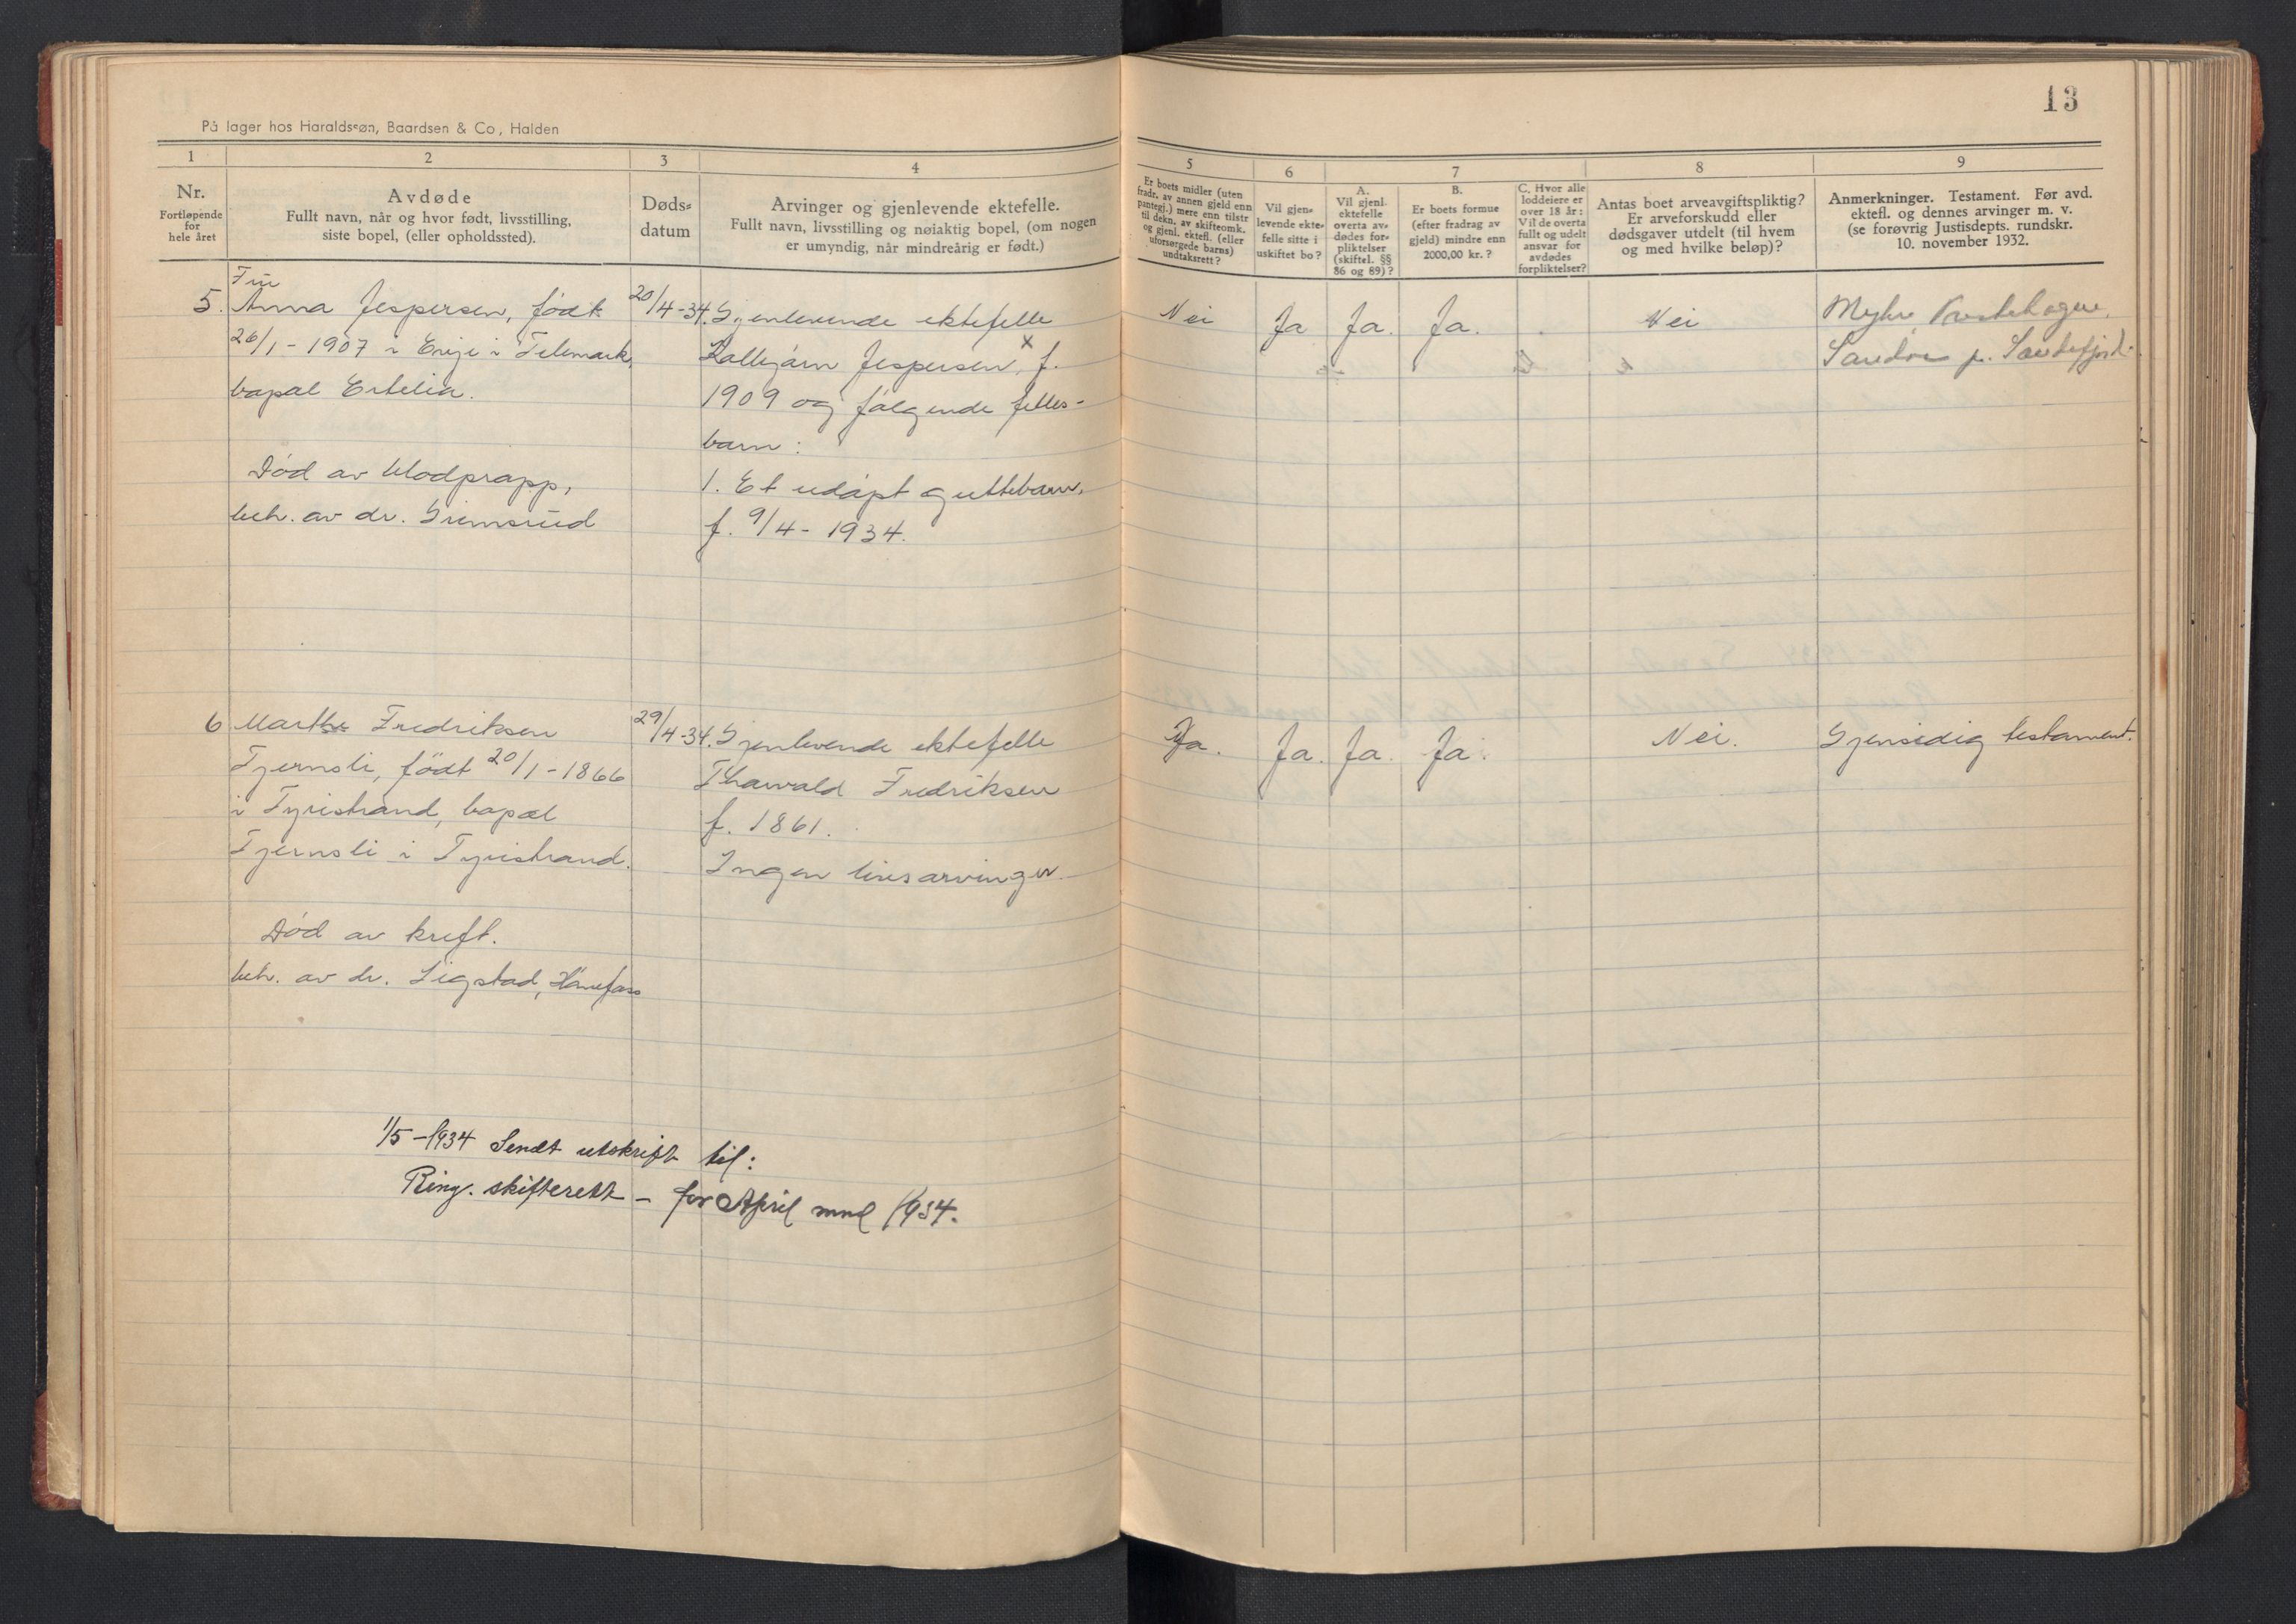 13
På lager hos Haraldssøn, Baardsen & Co, Halden
1
2
3
4
5
6
7
8
9
Nr.
Fortløpende
for
hele året
Avdøde
Fullt navn, når og hvor født, livsstilling,
siste bopel, (eller opholdssted).
Døds=
datum
Arvinger og gjenlevende ektefelle.
Fullt navn, livsstilling og nøiaktig bopel, (om nogen
er umyndig, når mindreårig er født.)
Er boets midler (uten
fradr. av annen gjeld enn
pantegj.) mere enn tilstr
til dekn. av skifteomk.
og gjenl. ektefl. (eller
uforsørgede barns)
undtaksrett?
Vil gjen=
levende ekte=
felle sitte i
uskiftet bo?
A.
Vil gjenl.
ektefelle
overta av=
dødes for=
pliktelser
(skiftel. §§
86 og 89)?
B.
Er boets formue
(efter fradrag av
gjeld) mindre enn
2000,00 kr.?
C. Hvor alle
loddeiere er
over 18 år:
Vil de overta
fullt og udelt
ansvar for
avdødes
forpliktelser?
Antas boet arveavgiftspliktig?
Er arveforskudd eller
dødsgaver utdelt (til hvem
og med hvilke beløp)?
Anmerkninger. Testament. Før avd.
ektefl. og dennes arvinger m. v.
(se forøvrig Justisdepts. rundskr.
10. november 1932.
Fru
5. Anna Jespersen, født
26/1 - 1907 i i Telemark,
bopæl Ertelia.
Død av blodpropp,
beh. av dr. Grimsrud
20/4-34.
Gjenlevende ektefelle
x
Jespersen, f.
1909 og følgende felles-
barn:
1. Et udøpt guttebarn,
f. 9/4 - 1934.
Nei
Ja
Ja.
Ja.
Nei
Sandar p. Sandefjord.
6 Marthe Fredriksen
Tjernsli, født 20/1 - 1866
i Tyristrand, bopæl
Tjernsli i Tyristrand.
Død av kreft.
beh. av dr. Sigstad, Hønefoss
29/4-34.
Gjenlevende ektefelle
Thorvald Fredriksen
f. 1861.
Ingen livsarvinger.
Ja.
Ja.
Ja.
Ja.
Nei.
Gjensidig testament.
1/5 - 1934 Sendt utskrift til:
Ring. skifterett - for April mnd 1934.